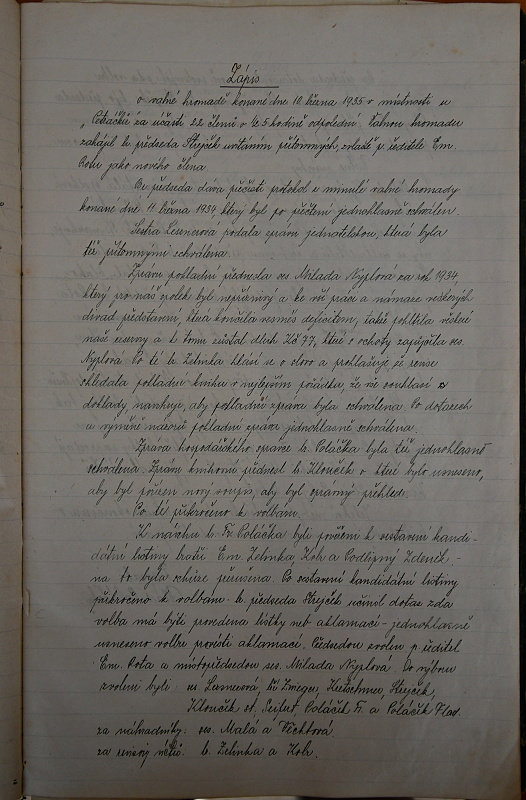 Zápis
o valné hromadě konané dne 10. března 1935 v místnosti u
„Poláčků" za účasti 22 členů v ½ 5 hodině odpolední. Valnou hromadu
zahájil b. předseda Strejček uvítáním přítomných, zvláště p. ředitele Em.
Potu jako nového člena
Br. předseda dává přečísti protokol z minulé valné hromady
konané dne 11. března 1934, který byl po přečtení jednohlasně schválen.
Sestra Lesnerová podala zprávu jednatelskou, která byla
též přítomnými schválena.
Zprávu pokladní přednesla ses. Milada Nyplová za rok 1934
který pro náš spolek byl nepříznivý a ke vší práci a námaze veškerých
divad. představení, která končila vesměs deficitem, také pohltila veškeré
naše reservy a k tomu zůstal dluh Kč 77, které z ochoty zapůjčila ses.
Nyplová. Po té b. Zelinka hlásí se o slovo a prohlašuje že revise
shledala pokladní knihu v nejlepším pořádku, že vše souhlasí z
doklady, navrhuje, aby pokladní zpráva byla schválena. Po dotazech
a výměně názorů pokladní zpráva jednohlasně schválena.
Zpráva hospodářského správce b. Poláčka byla též jednohlasně
schválena. Zprávu knihovní přednesl b. Kloučik o které bylo usneseno,
aby byl pořízen nový soupis, aby byl správný přehled.
Po té přikročeno k volbám.
K návrhu b. Fr. Poláčka byli pověřeni k sestavení kandi-
dátní listiny bratři Em. Zelinka, Koh a Podlipný Zdeněk -
na to byla schůze přerušena. Po sestavení kandidátní listiny
přikročeno k volbám. b. předseda Strejček učinil dotaz zda
volba má býti provedena lístky neb aklamací - jednohlasně
usneseno volbu provésti aklamací. Předsedou zvolen p. ředitel
Em. Pota a místopředsedou ses. Milada Nyplová. Do výboru
zvoleni byli: Kretschmer, Strejček,
Kloučik st. Seifert Poláček Fr. a Poláček Vlad.
za náhradníky: ses. Malá a Věchtová
za revisory účtů: b. Zelinka a Koh.